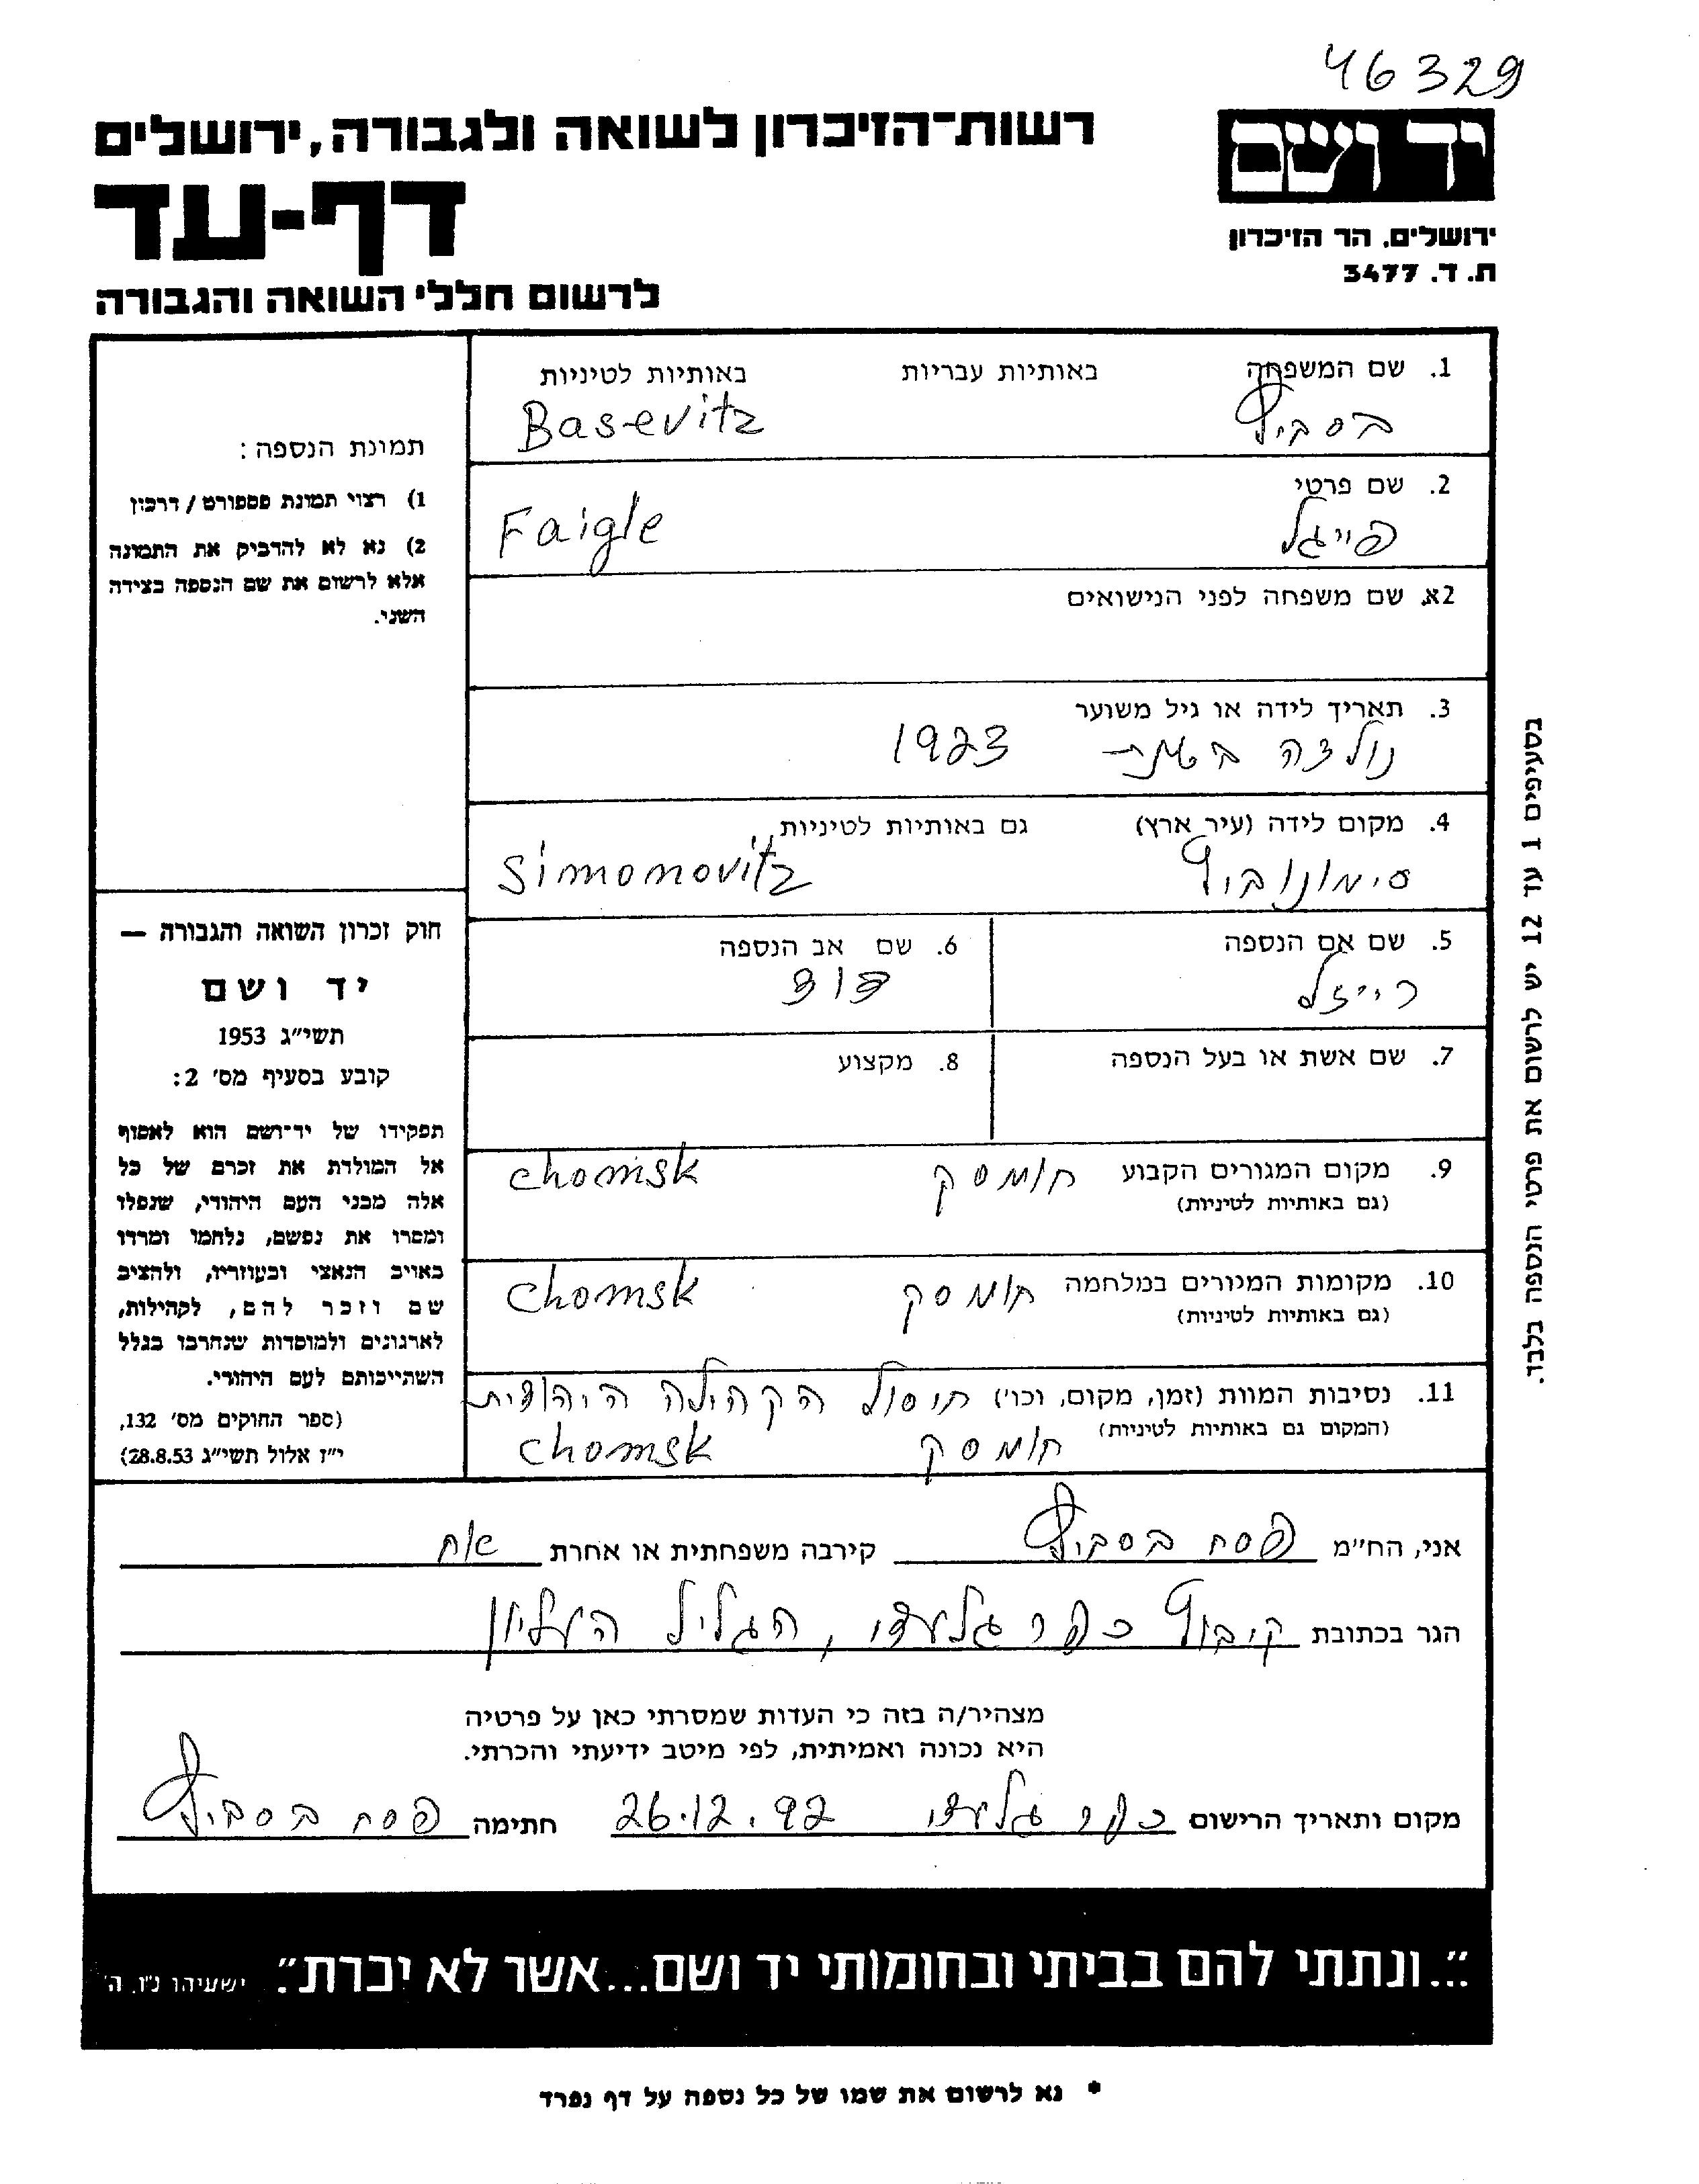 46329
יד ושם
רשות־הזיכרון לשואה ולגבורה, ירושלים
דף-עד
ירושלים, הר הזיכרון
ת. ד. 3477
לרשום חללי השואה והגבורה
1. שם המשפחה באותיות עבריות באותיות לטיניות
בסביץ Basevitz
2. שם פרטי
פייגל Faigle
2א. שם משפחה לפני הנישואים
3. תאריך לידה או גיל משוער
נולדה בשנת 1923
4. מקום לידה (עיר, ארץ) גם באותיות לטיניות
סימונוביץ Simonovitz
5. שם אם הנספה 6. שם אב הנספה
רייזל דוד
7. שם אשת או בעל הנספה 8. מקצוע
9. מקום המגורים הקבוע חומסק chomsk
(גם באותיות לטיניות)
10. מקומות המגורים במלחמה חומסק chomsk
(גם באותיות לטיניות)
11. נסיבות המוות (זמן, מקום, וכו') חיסול הקהילה היהודית
(המקום גם באותיות לטיניות) חומסק chomsk
תמונת הנספה:
1) רצוי תמונת פספורט / דרכון
2) נא לא להדביק את התמונה
אלא לרשום את שם הנספה בצידה
השני.
חוק זכרון השואה והגבורה —
יד ושם
תשי"ג 1953
קובע בסעיף מס' 2:
תפקידו של יד־ושם הוא לאסוף
אל המולדת את זכרם של כל
אלה מבני העם היהודי, שנפלו
ומסרו את נפשם, נלחמו ומרדו
באויב הנאצי ובעוזריו, ולהציב
שם וזכר להם, לקהילות,
לארגונים ולמוסדות שנחרבו בגלל
השתייכותם לעם היהודי.
(ספר החוקים מס' 132,
י"ז אלול תשי"ג 28.8.53)
בסעיפים 1 עד 12 יש לרשום את פרטי הנספה בלבד.
אני, הח"מ פסח בסביץ קירבה משפחתית או אחרת אח
הגר בכתובת קיבוץ כפר גלעדי, הגליל העליון
מצהיר/ה בזה כי העדות שמסרתי כאן על פרטיה
היא נכונה ואמיתית, לפי מיטב ידיעתי והכרתי.
מקום ותאריך הרישום כפר גלעדי 26.12.92 חתימה פסח בסביץ
"...ונתתי להם בביתי ובחומותי יד ושם...אשר לא יכרת". ישעיהו נ"ו, ה'
* נא לרשום את שמו של כל נספה על דף נפרד